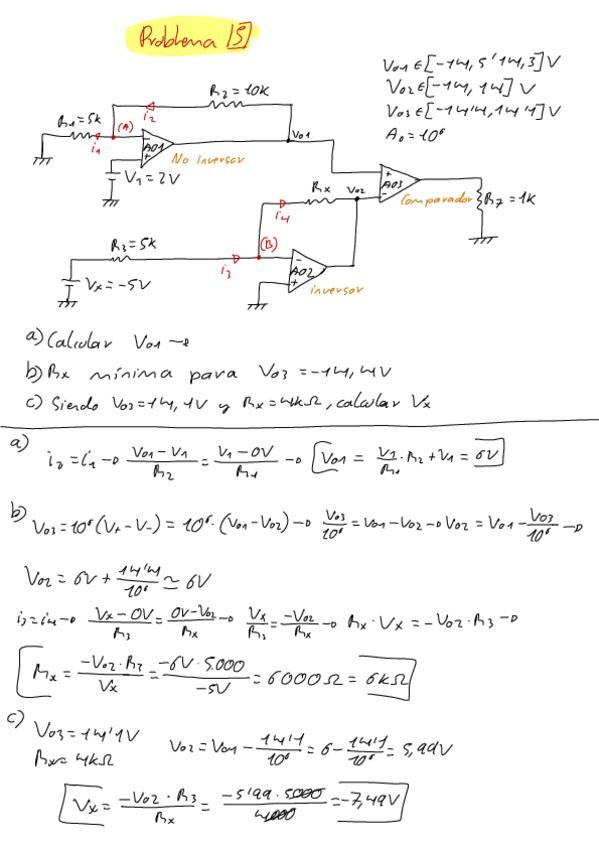 Problema 5
Vo1 ∈ [-14,5 ' 14,3] V
Vo2 ∈ [-14, 14] V
Vo3 ∈ [-14'4, 14'1] V
Ao = 10⁶
R2 = 10k
R1 = 5k
(A)
i2
i1
AO1
Vo1
No inversor
V1 = 2V
Rx
Vo2
AO3
Comparador
R7 = 1k
i4
R3 = 5k
(B)
i3
AO2
inversor
Vx = -5V
a) Calcular Vo1 →
b) Rx mínima para Vo3 = -14,4V
c) Siendo Vo3 = 14,1V y Rx = 4kΩ, calcular Vx
a)
i2 = i1 → (Vo1 - V1)/R2 = (V1 - 0V)/R1 → Vo1 = V1/R1 · R2 + V1 = 6V
b)
Vo3 = 10⁶(V+ - V-) = 10⁶ · (Vo1 - Vo2) → Vo3/10⁶ = Vo1 - Vo2 → Vo2 = Vo1 - Vo3/10⁶ →
Vo2 = 6V + 14'4/10⁶ ≃ 6V
i3 = i4 → (Vx - 0V)/R3 = (0V - Vo2)/Rx → Vx/R3 = -Vo2/Rx → Rx · Vx = -Vo2 · R3 →
Rx = (-Vo2 · R3)/Vx = (-6V · 5.000)/-5V = 6000Ω = 6kΩ
c)
Vo3 = 14'1V
Rx = 4kΩ
Vo2 = Vo1 - 14'1/10⁶ = 6 - 14'1/10⁶ = 5,99V
Vx = (-Vo2 · R3)/Rx = (-5'99 · 5.000)/4.000 = -7,49V